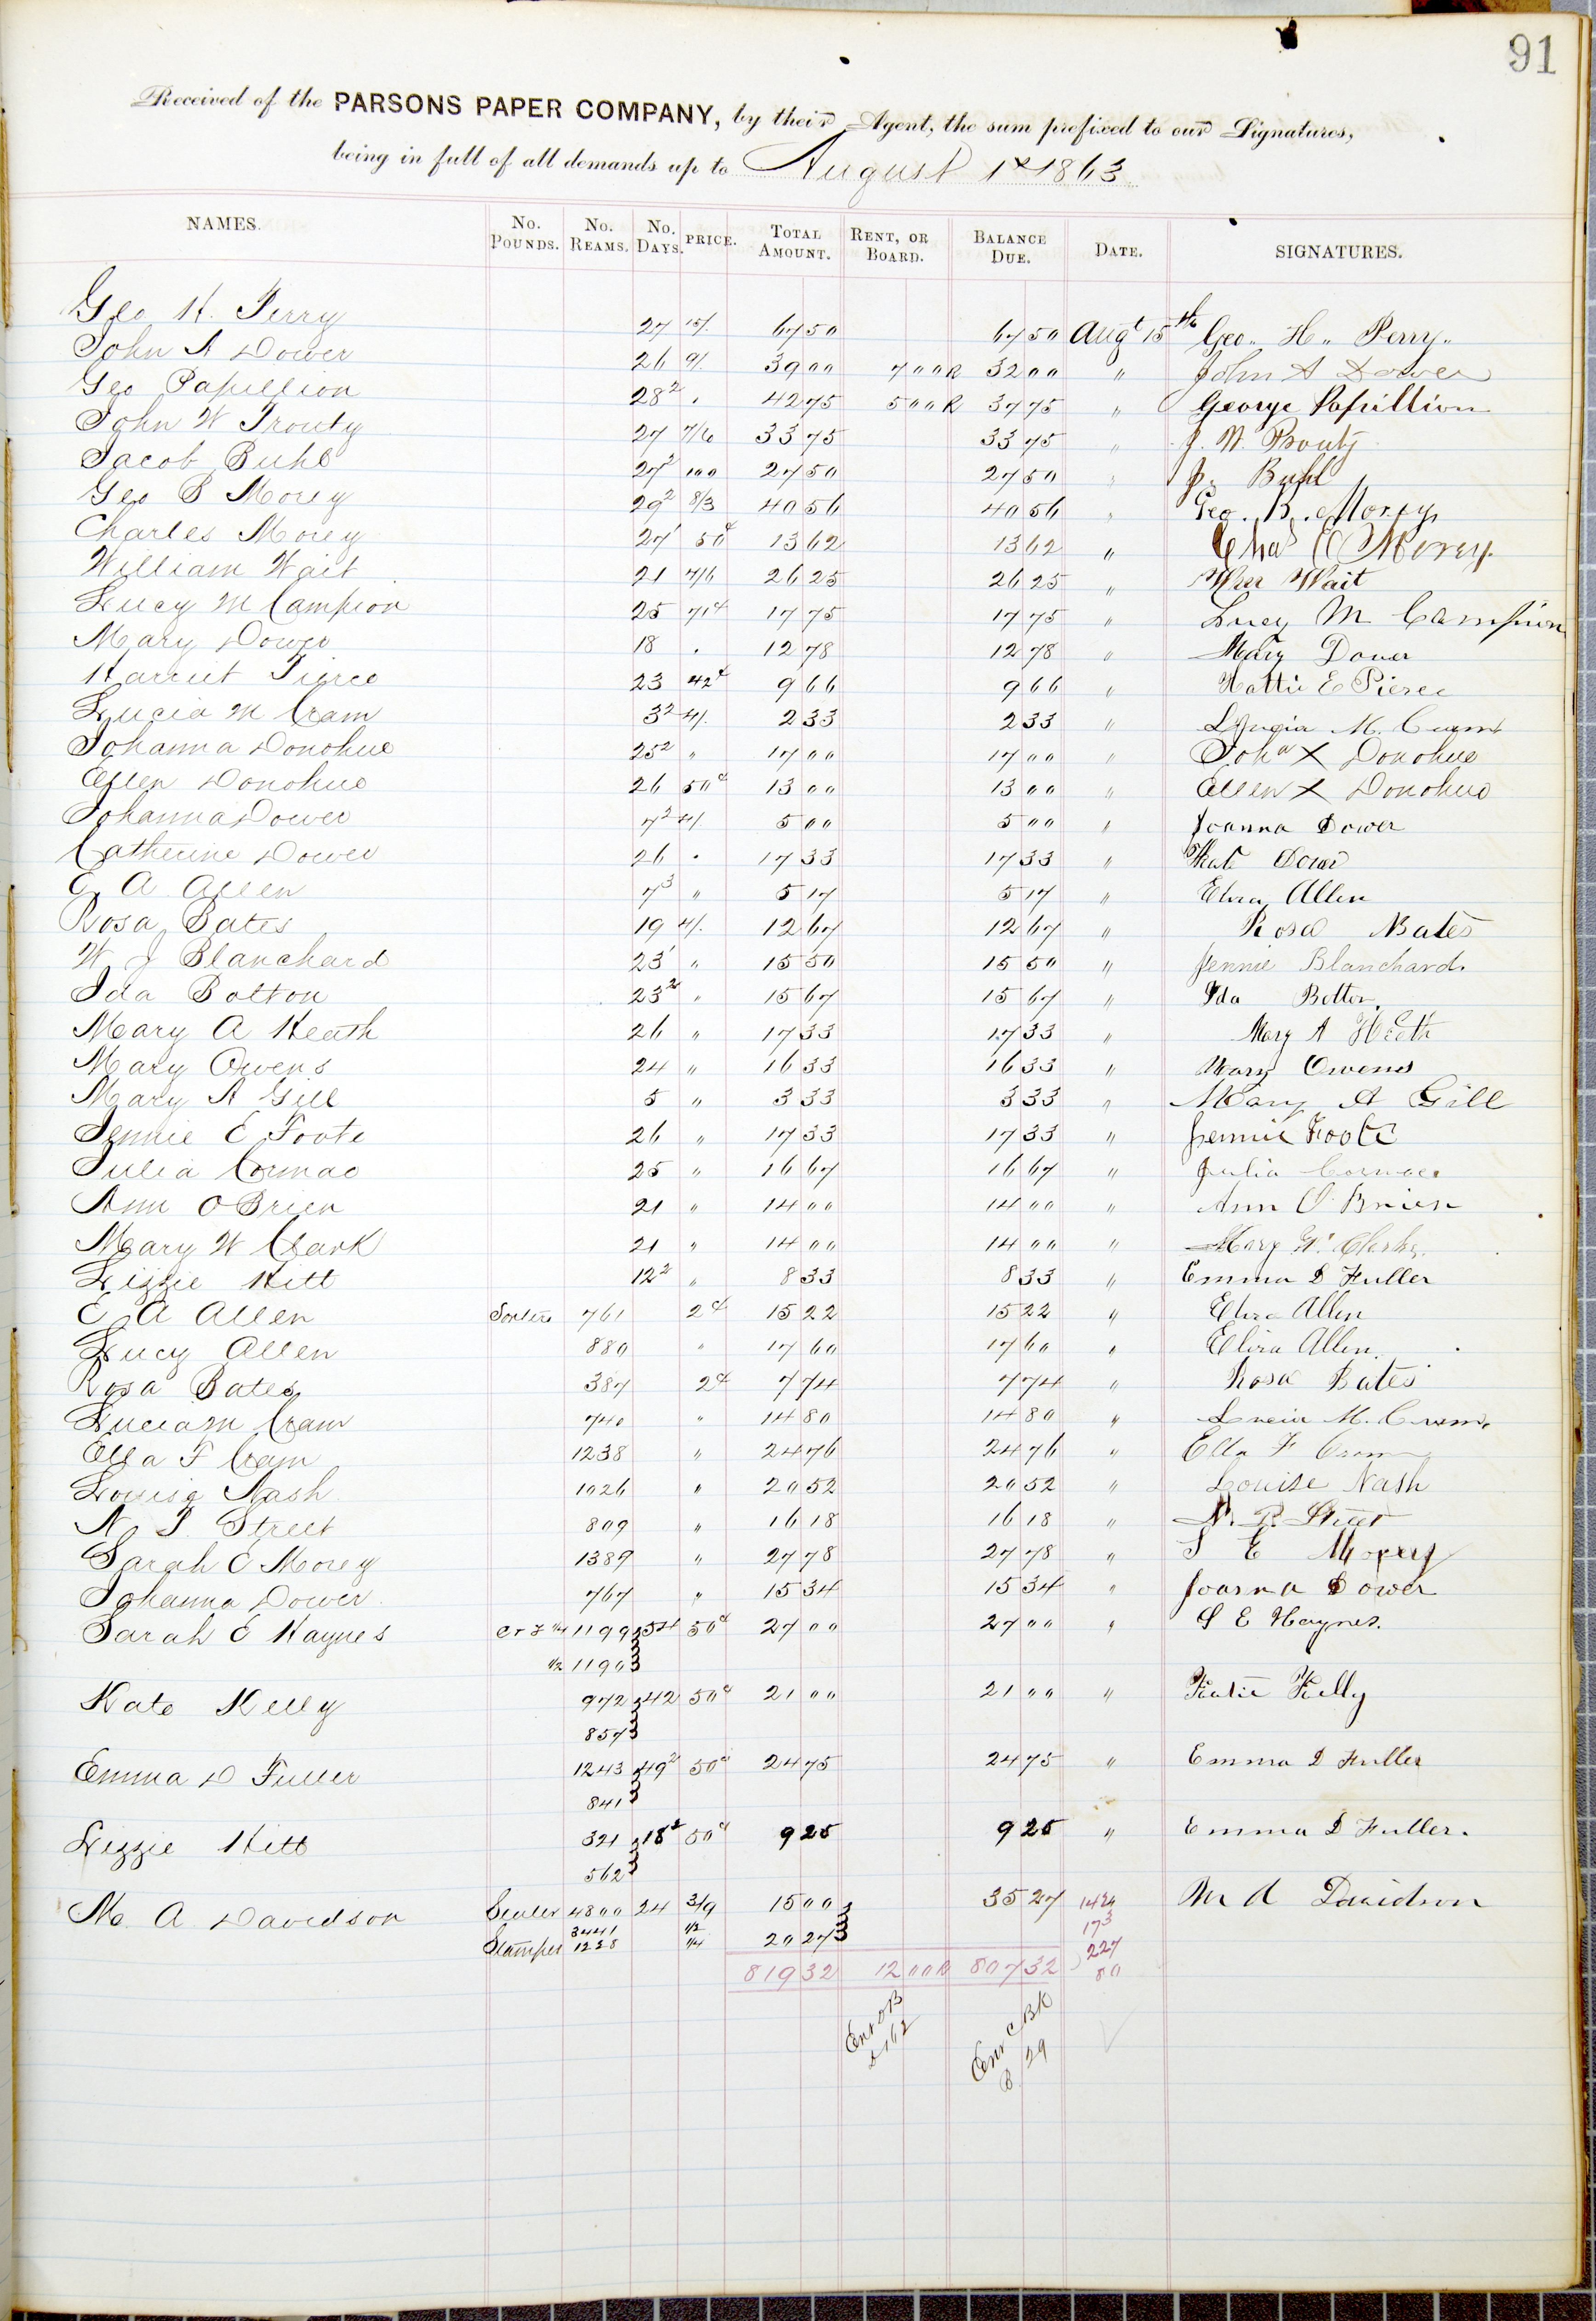 91
Received of the PARSONS PAPER COMPANY, by their Agent, the sum prefixed to our Signatures,
being in full of all demands up to August 1st 1863
NAMES. No. POUNDS. No. REAMS. No. DAYS. PRICE. TOTAL AMOUNT. RENT, OR BOARD. BALANCE DUE. DATE. SIGNATURES.
Geo H. Perry 27 15/. 67 50 67 50 Augt 15th Geo. H. Perry.
John A Dower 26 9/. 39 00 7 00 R 32 00 " John A Dower
Geo Papillion 28² . 42 75 5 00 R 37 75 " George Papillion
John W Prouty 27 7/6 33 75 33 75 " J. W. Prouty
Jacob Buhl 27² 100 27 50 27 50 " J. Buhl
Geo B Morey 29² 8/3 40 56 40 56 " Geo. B. Morey
Charles Morey 27¹ 50¢ 13 62 13 62 " Chas E Morey.
William Wait 21 7/6 26 25 26 25 " Wm Wait
Lucy M Campion 25 71¢ 17 75 17 75 " Lucy M Campion
Mary Dower 18 . 12 78 12 78 " Mary Dower
Harriet Pierce 23 42¢ 9 66 9 66 " Hattie E Pierce
Lucia M Cram 3² 4/. 2 33 2 33 " Lucia M. Cram
Johanna Donohue 25² " 17 00 17 00 " Joha X Donohue
Ellen Donohue 26 50¢ 13 00 13 00 " Ellen X Donohue
Johanna Dower 7² 4/. 5 00 5 00 " Joanna Dower
Catherine Dower 26 . 17 33 17 33 " Kate Dower
E A Allen 7³ " 5 17 5 17 " Elvira Allen
Rosa Bates 19 4/. 12 67 12 67 " Rosa Bates
W J Blanchard 23¹ " 15 50 15 50 " Jennie Blanchard.
Ida Bolton 23² " 15 67 15 67 " Ida Bolton.
Mary A Heath 26 " 17 33 17 33 " Mary A Heath
Mary Owens 24 " 16 33 16 33 " Mary Owens
Mary A Gill 5 " 3 33 3 33 " Mary A Gill
Jennie E Foote 26 " 17 33 17 33 " Jennie Foote
Julia Cormac 25 " 16 67 16 67 " Julia Cormac.
Ann OBrien 21 " 14 00 14 00 " Ann O Brien
Mary W Clark 21 " 14 00 14 00 " Mary W. Clark.
Lizzie Hitt 12² " 8 33 8 33 " Emma D Fuller
E A Allen Sorters 761 2¢ 15 22 15 22 " Elvira Allen
Lucy Allen 880 " 17 60 17 60 " Elvira Allen.
Rosa Bates 387 2¢ 7 74 7 74 " Rosa Bates
Lucia M Cram 740 " 14 80 14 80 " Lucia M. Cram.
Ella F Cram 1238 " 24 76 24 76 " Ella F Cram
Louise Nash 1026 " 20 52 20 52 " Louise Nash
N P Street 809 " 16 18 16 18 " N. P. Street
Sarah E Morey 1389 " 27 78 27 78 " S E Morey
Johanna Dower 767 " 15 34 15 34 " Joanna Dower
Sarah E Haynes C & F 1/4 1199 } 54 50¢ 27 00 27 00 " S E Haynes.
1/2 1190 }
Kate Kelly 972 } 42 50¢ 21 00 21 00 " Katie Kelly
857 }
Emma D Fuller 1243 } 49² 50¢ 24 75 24 75 " Emma D Fuller
841 }
Lizzie Hitt 321 } 18² 50¢ 9 25 9 25 " Emma D Fuller.
562 }
M. A Davidson Sealer 4800 24 3/9 15 00 } 35 27 M A Davidson
3441 1/2 17³
Stamper 1228 1/4 20 27 }
227
819 32 12 00 R 807 32 80
29